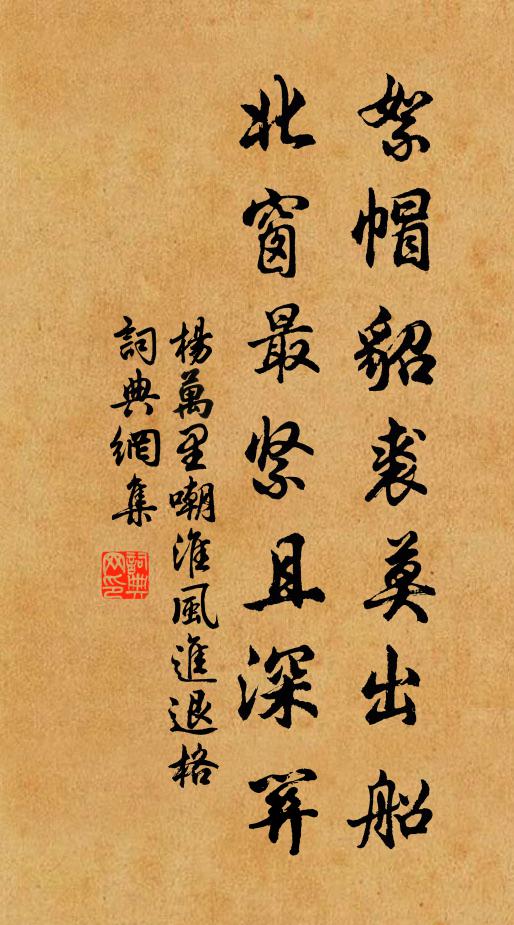 絮帽貂裘莫出船
北窗最緊且深關
楊萬里嘲淮風進退格
詞典網集
詞典
网印